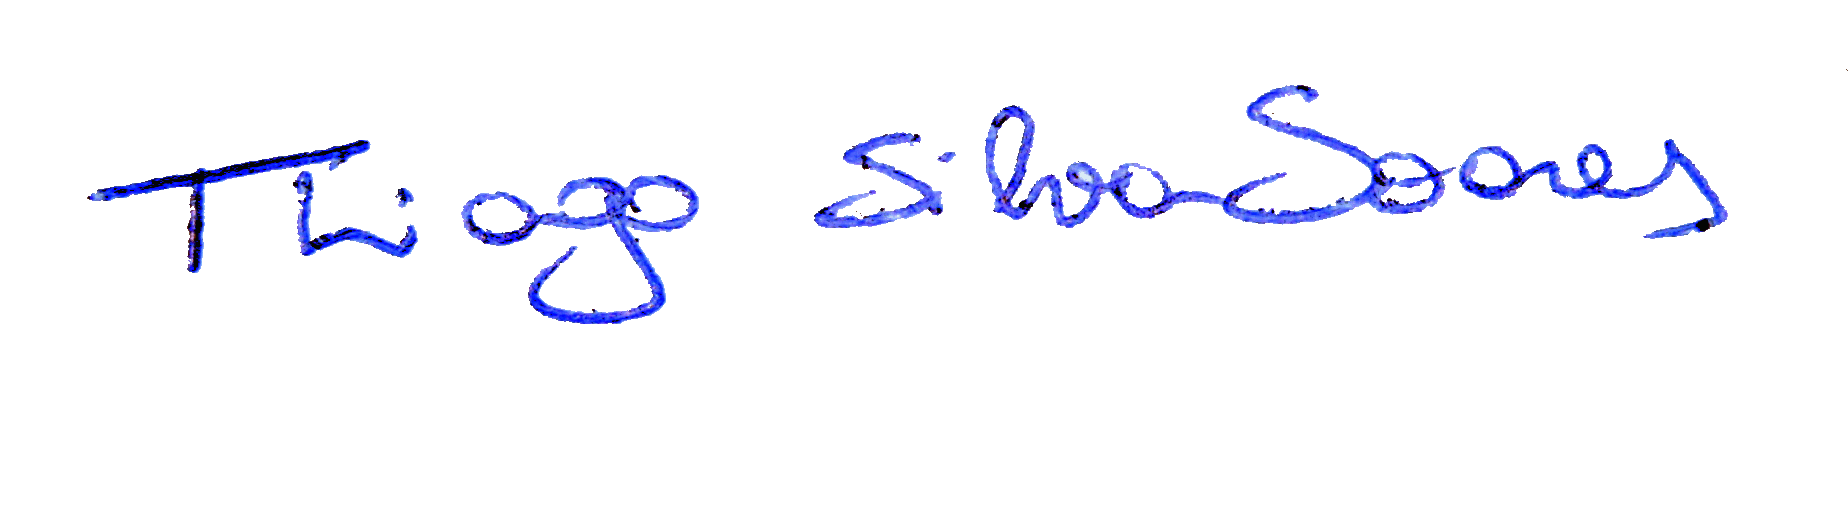 Thiago Silva Soares